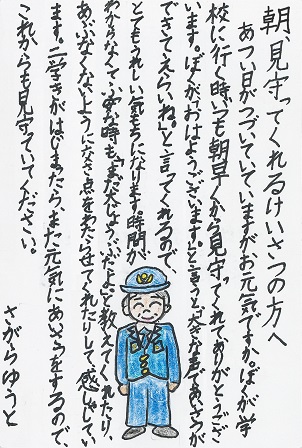 朝、見守ってくれるけいさつの方へ
あつい日がつづいていていますがお元気ですか。ぼくが学
校に行く時、いつも朝早くから見守ってくれてありがとうござ
います。ぼくが「おはようございます。」と言うと「大きな声であいさつが
できてえらいね。」と言ってくれるので、
とてもうれしい気もちになります。時間が
わからなくて不安な時も、「まだ大じょうぶだよ」と教えてくれたり、
あぶなくないように交さ点をわたらせてくれたりして、感しゃしてい
ます。二学きがはじまったら、また元気にあいさつをするので、
これからも見守っていてください。
さがらゆうと